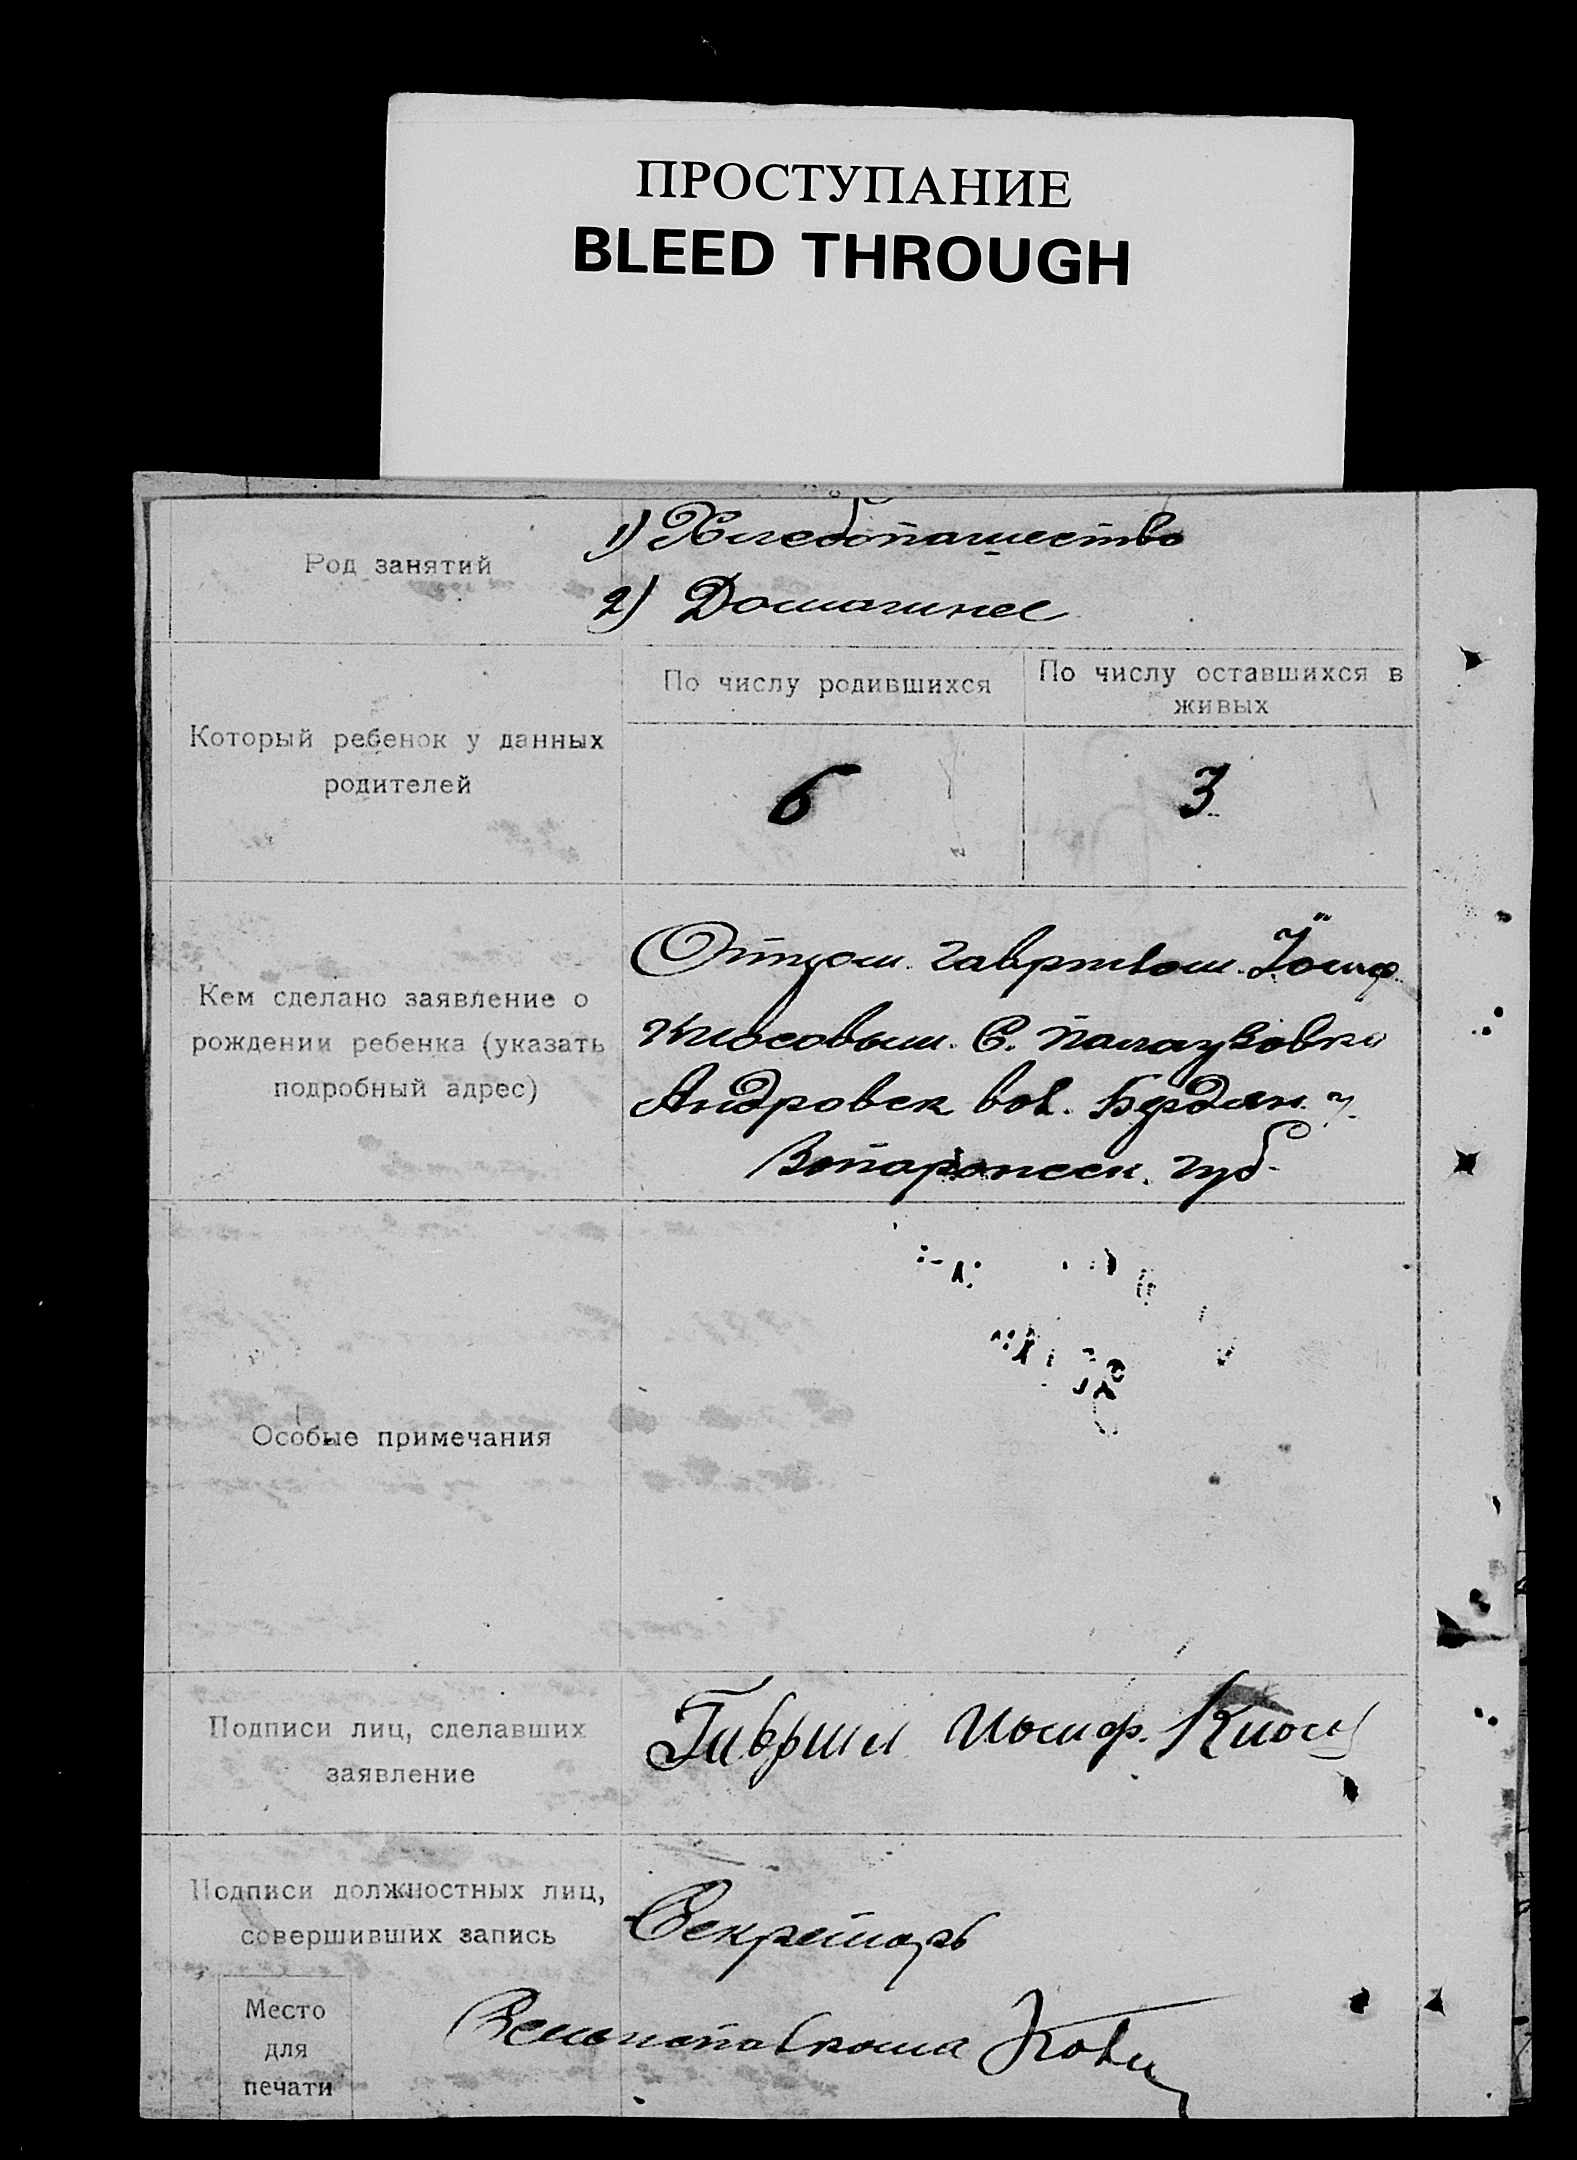 ПРОСТУПАНИЕ
BLEED THROUGH
Род занятий
1) Хлебопашество
2) Домашнее
Который ребенок у данных
родителей
По числу родившихся
По числу оставшихся в
живых
6
3
Кем сделано заявление о
рождении ребенка (указать
подробный адрес)
Отцом
С.
Андровск вол. Бердян. у.
губ.
Особые примечания
Подписи лиц, сделавших
заявление
Иосиф.
Подписи должностных лиц,
совершивших запись
Секретарь
Место
для
печати